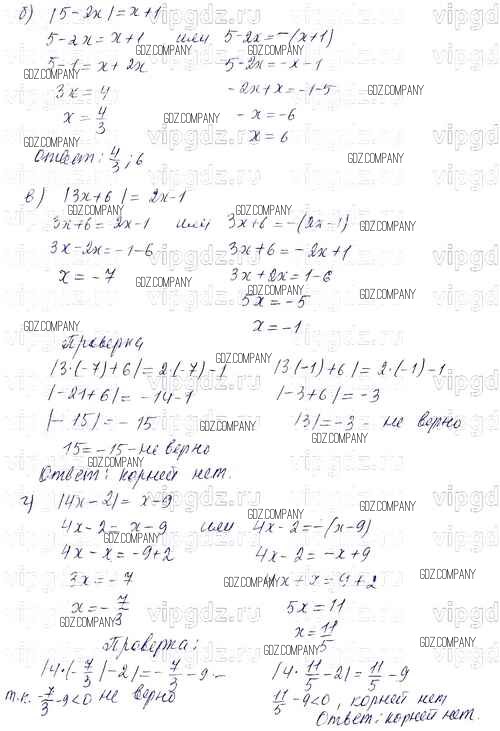 б) |5-2x|=x+1
5-2x=x+1 или 5-2x=-(x+1)
5-1=x+2x 5-2x=-x-1
3x=4 -2x+x=-1-5
x=4/3 -x=-6
x=6
Ответ: 4/3; 6
в) |3x+6|=2x-1
3x+6=2x-1 или 3x+6=-(2x-1)
3x-2x=-1-6 3x+6=-2x+1
x=-7 3x+2x=1-6
5x=-5
x=-1
Проверка
|3·(-7)+6|=2·(-7)-1 |3(-1)+6|=2·(-1)-1
|-21+6|=-14-1 |-3+6|=-3
|-15|=-15 |3|=-3 - не верно
15=-15-не верно
Ответ: корней нет.
г) |4x-2|=x-9
4x-2=x-9 или 4x-2=-(x-9)
4x-x=-9+2 4x-2=-x+9
3x=-7 4x+x=9+2
x=-7/3 5x=11
x=11/5
Проверка:
|4·(-7/3)-2|=-7/3-9- |4·11/5-2|=11/5-9
т.к. -7/3-9<0 не верно 11/5-9<0, корней нет
Ответ: корней нет.
GDZ.COMPANY
vipgdz.ru